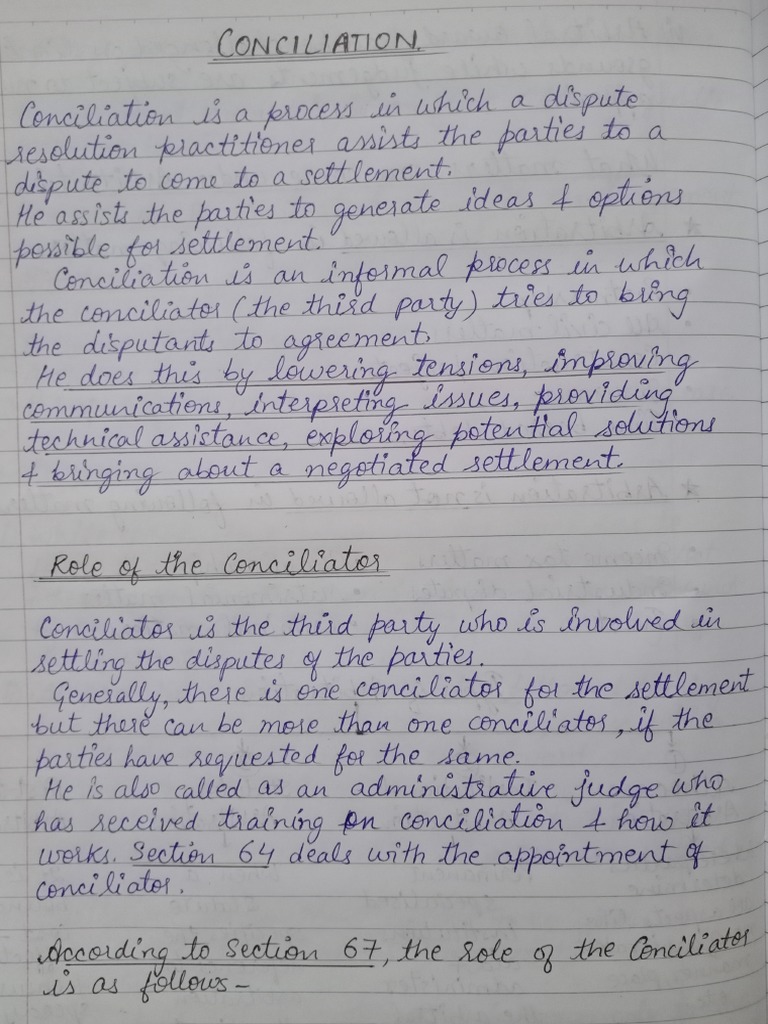 CONCILIATION.
Conciliation is a process in which a dispute
resolution practitioner assists the parties to a
dispute to come to a settlement.
He assists the parties to generate ideas & options
possible for settlement.
Conciliation is an informal process in which
the conciliator (the third party) tries to bring
the disputants to agreement.
He does this by lowering tensions, improving
communications, interpreting issues, providing
technical assistance, exploring potential solutions
& bringing about a negotiated settlement.
Role of the Conciliator
Conciliator is the third party who is involved in
settling the disputes of the parties.
Generally, there is one conciliator for the settlement
but there can be more than one conciliator, if the
parties have requested for the same.
He is also called as an administrative judge who
has received training on conciliation & how it
works. Section 64 deals with the appointment of
conciliator.
According to Section 67, the role of the Conciliator
is as follows-